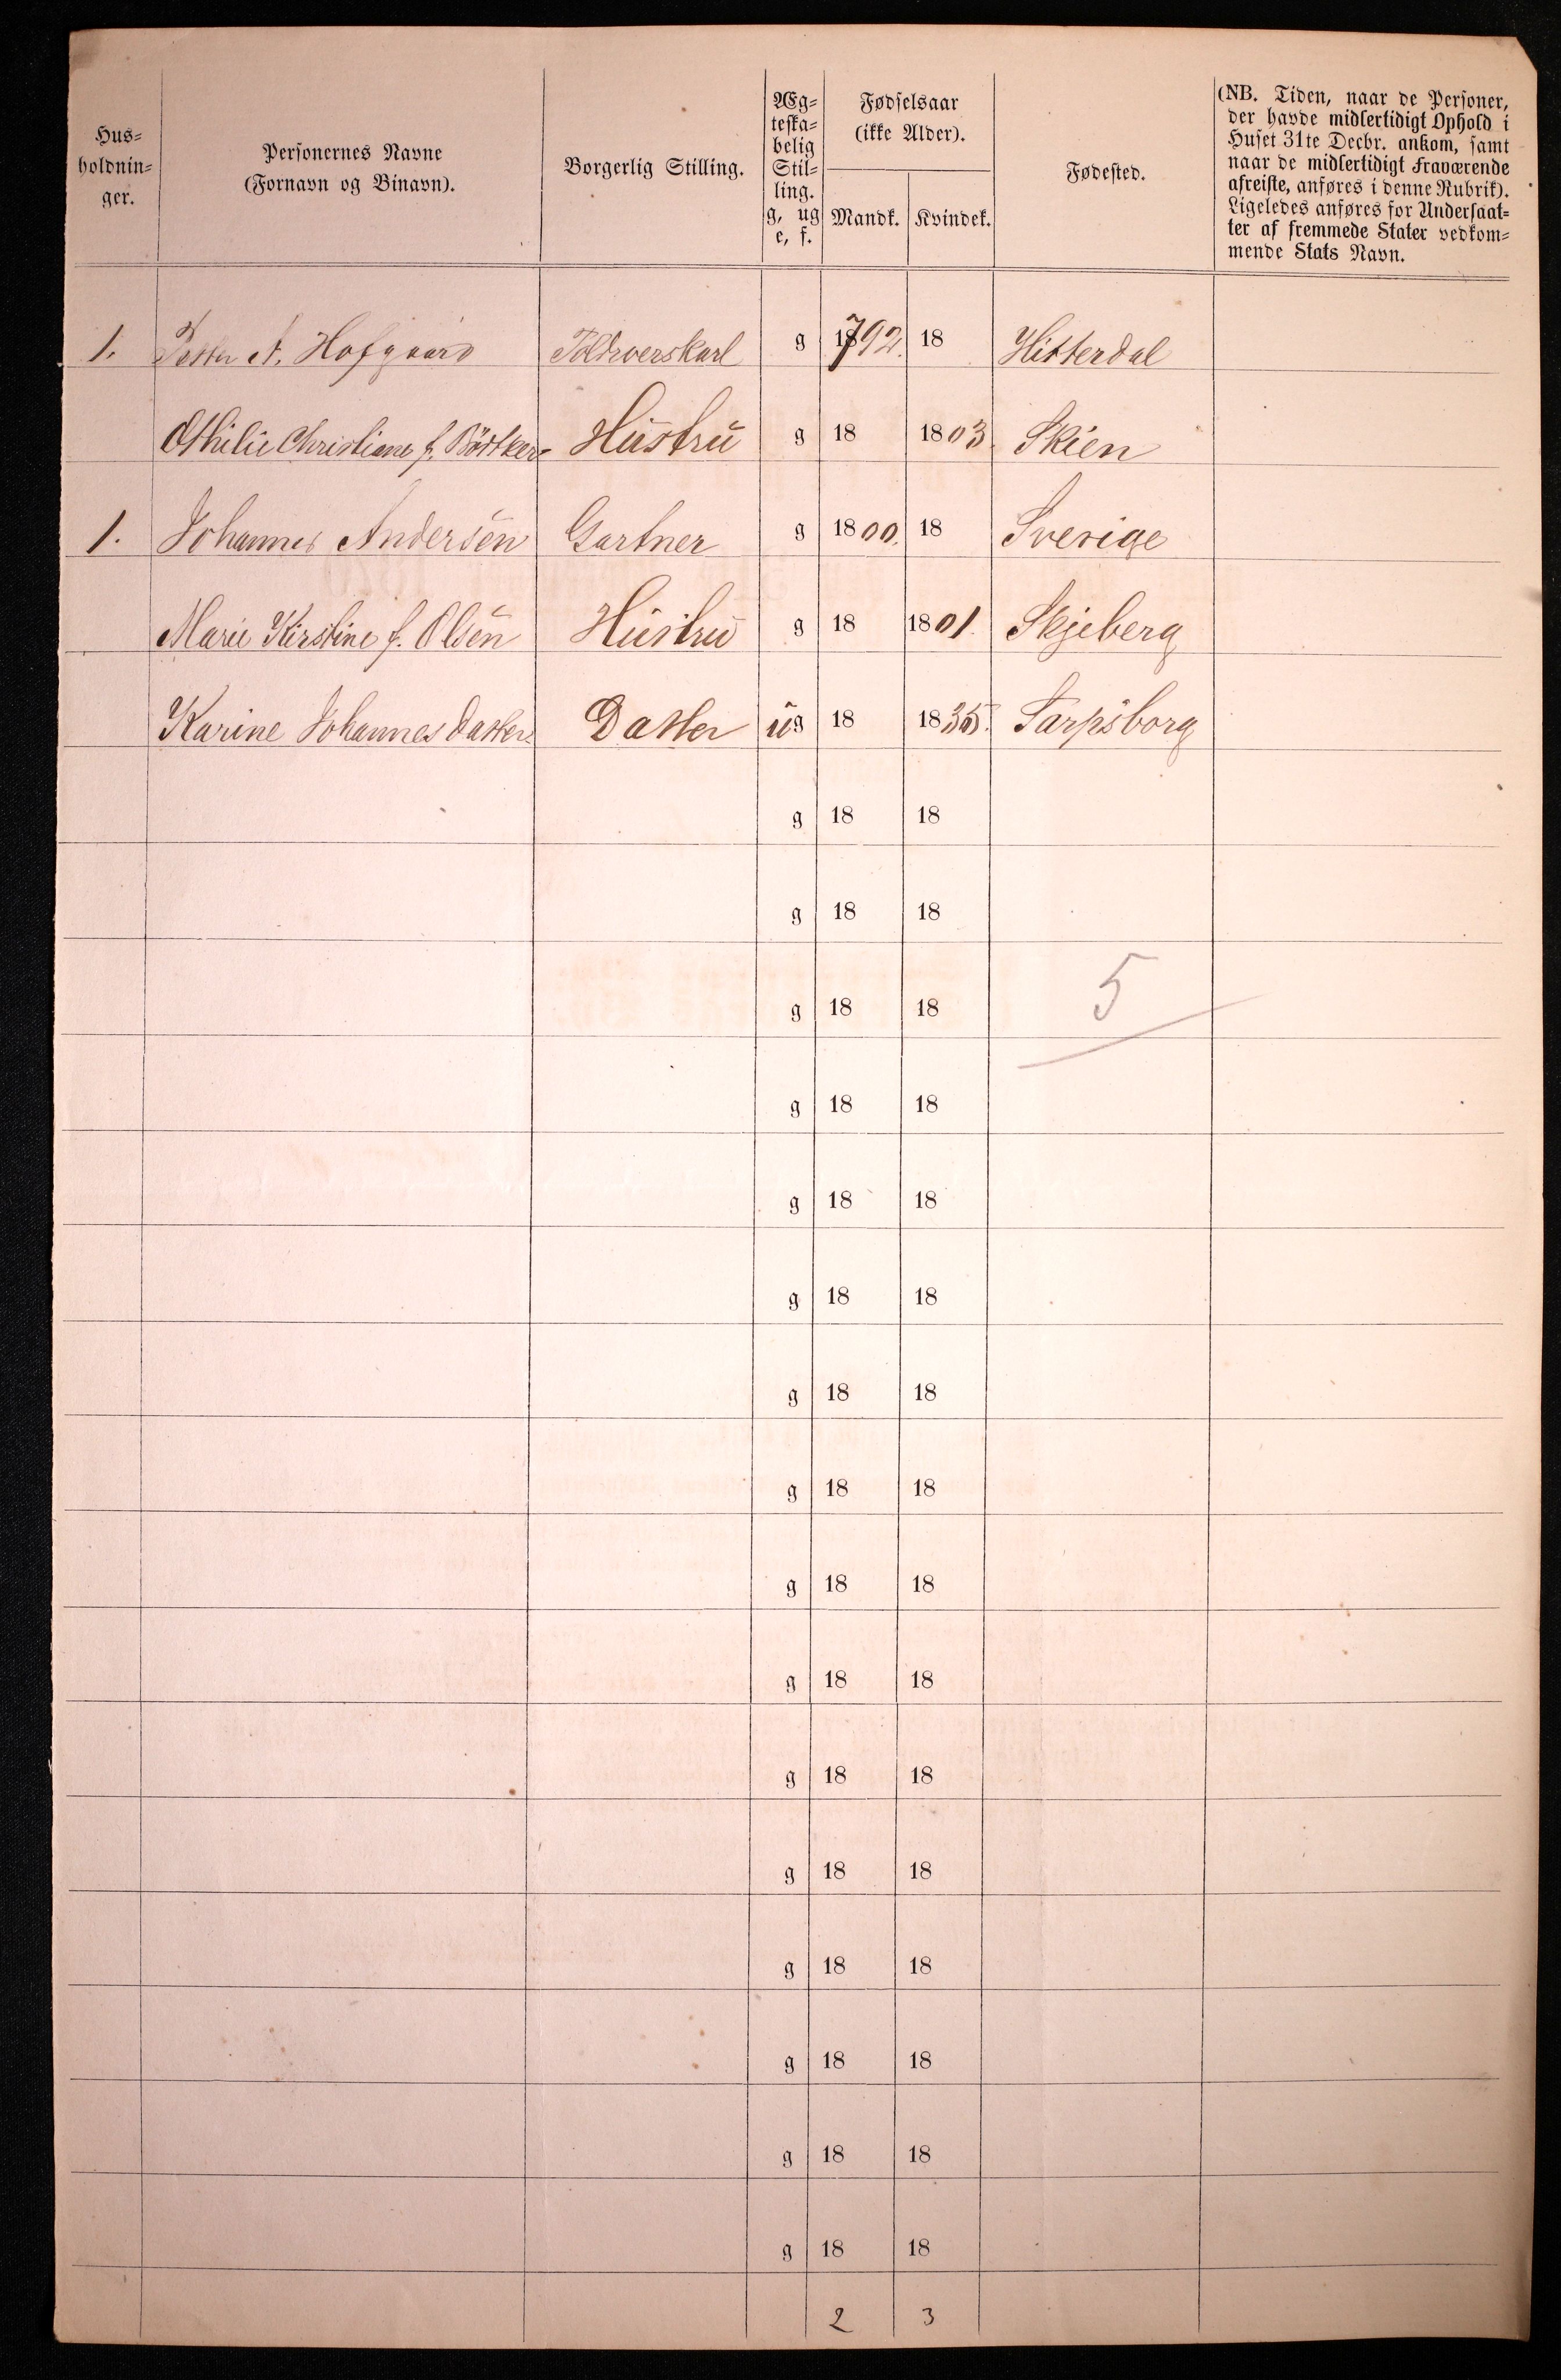 Hus-
holdnin-
ger.
Personernes Navne
(Fornavn og Binavn).
Borgerlig Stilling.
Æg-
teska-
belig
Stil-
ling.
g, ug
e, f.
Fødselsaar
(ikke Alder).
Mandk. Kvindek.
Fødested.
(NB. Tiden, naar de Personer,
der havde midlertidigt Ophold i
Huset 31te Decbr. ankom, samt
naar de midlertidigt fraværende
afreiste, anføres i denne Rubrik).
Ligeledes anføres for Undersaat-
ter af fremmede Stater vedkom-
mende Stats Navn.
1. A. Hofgaard g 1792. 18 Hitterdal
Othilie Christiane f. Bödtker Hustru g 18 1803. Skien
1. Johannes Andersen Gartner g 1800. 18 Sverige
Marie Kirstine f. Olsen Hustru g 18 1801. Skjeberg
Karine Johannesdatter Datter ug 18 1835. Sarpsborg
g 18 18
g 18 18
g 18 18
5
g 18 18
g 18 18
g 18 18
g 18 18
g 18 18
g 18 18
g 18 18
g 18 18
g 18 18
g 18 18
g 18 18
g 18 18
g 18 18
2 3